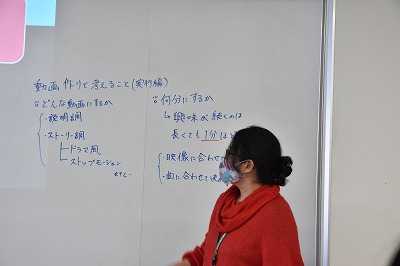 動画作りで考えること(実行編)
∵どんな動画にするか
・説明調
・ストーリー調
ドラマ風
ストップモーション
etc…
∵何分にするか
↳興味が続くのは
長くても1分ほど
・映像に合わせ
・曲に合わせて決